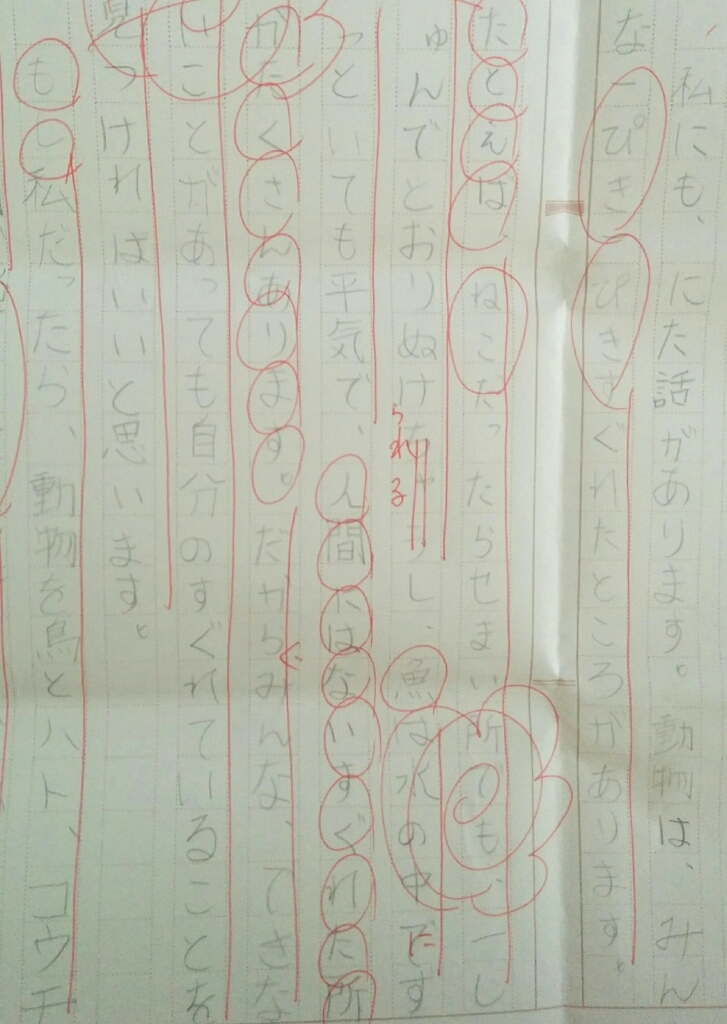 私にも、にた話があります。動物は、みん
な一ぴき一ぴきすぐれたところがあります。
たとえば、ねこだったらせまい所でも、一し
ゅんでとおりぬけたりし、魚は水の中です
られる
だ
っといても平気で、人間にはないすぐれた所
がたくさんあります。だからみんな、できな
いことがあっても自分のすぐれていることを
見つければいいと思います。
もし私だったら、動物を鳥とハト、コウモ